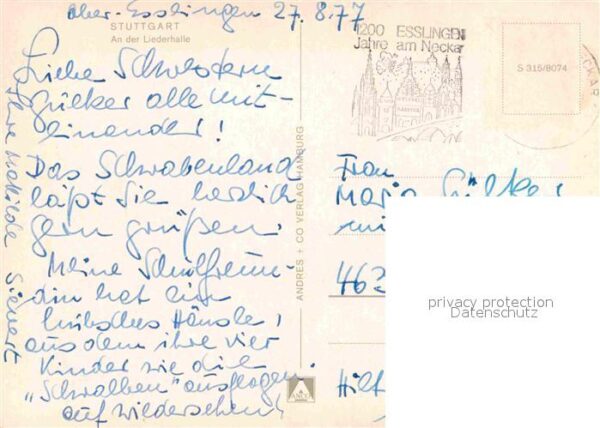 Ober-Esslingen 27.8.77
STUTTGART
An der Liederhalle
Liebe Schwestern
Gülker alle mit-
einander!
Das Schwabenland
läßt Sie herzlich
gern grüßen.
Meine Schulfreun-
din hat ein
hübsches Häusle,
aus dem ihre vier
Kinder wie die
„Schwalben" ausflogen.
auf Wiedersehen!
Ihre Mathilde Sievert
ANDRES + CO VERLAG HAMBURG
ANCO
1200 ESSLINGEN
Jahre am Neckar
S 315/8074
Frau
Maria Gülker
463
Hilt
privacy protection
Datenschutz